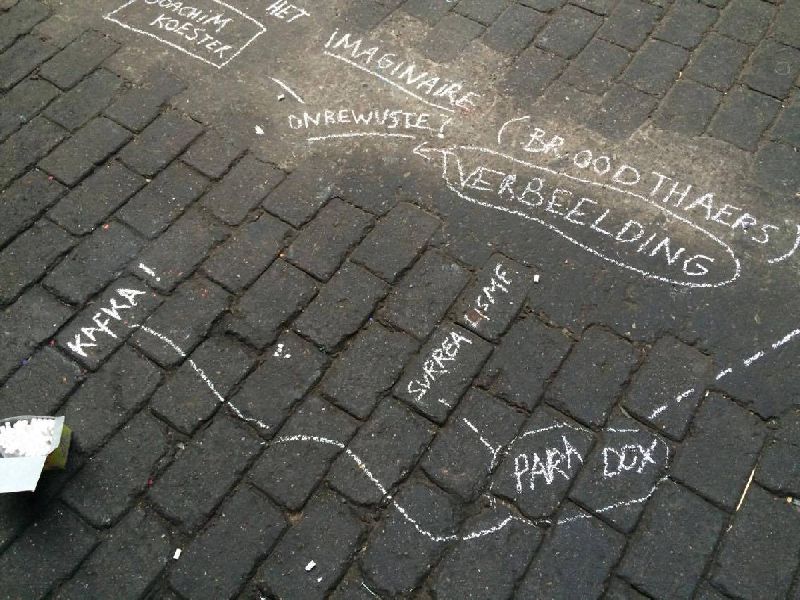 JOACHIM
KOESTER
HET
IMAGINAIRE
ONBEWUSTE!
(BROODTHAERS)
VERBEELDING
KAFKA!
SURREALISME
!
PARADOX